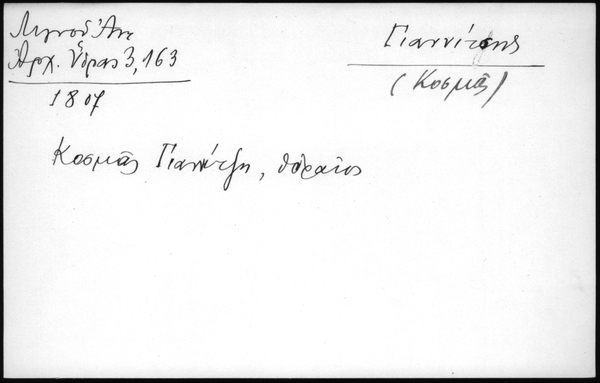 Λιγνοῦ Ἀντ
Ἀρχ. Ὕδρας 3, 163
1807
Γιαννίτσης
(Κοσμᾶς)
Κοσμᾶς Γιαννίτζη, ὑδραῖος